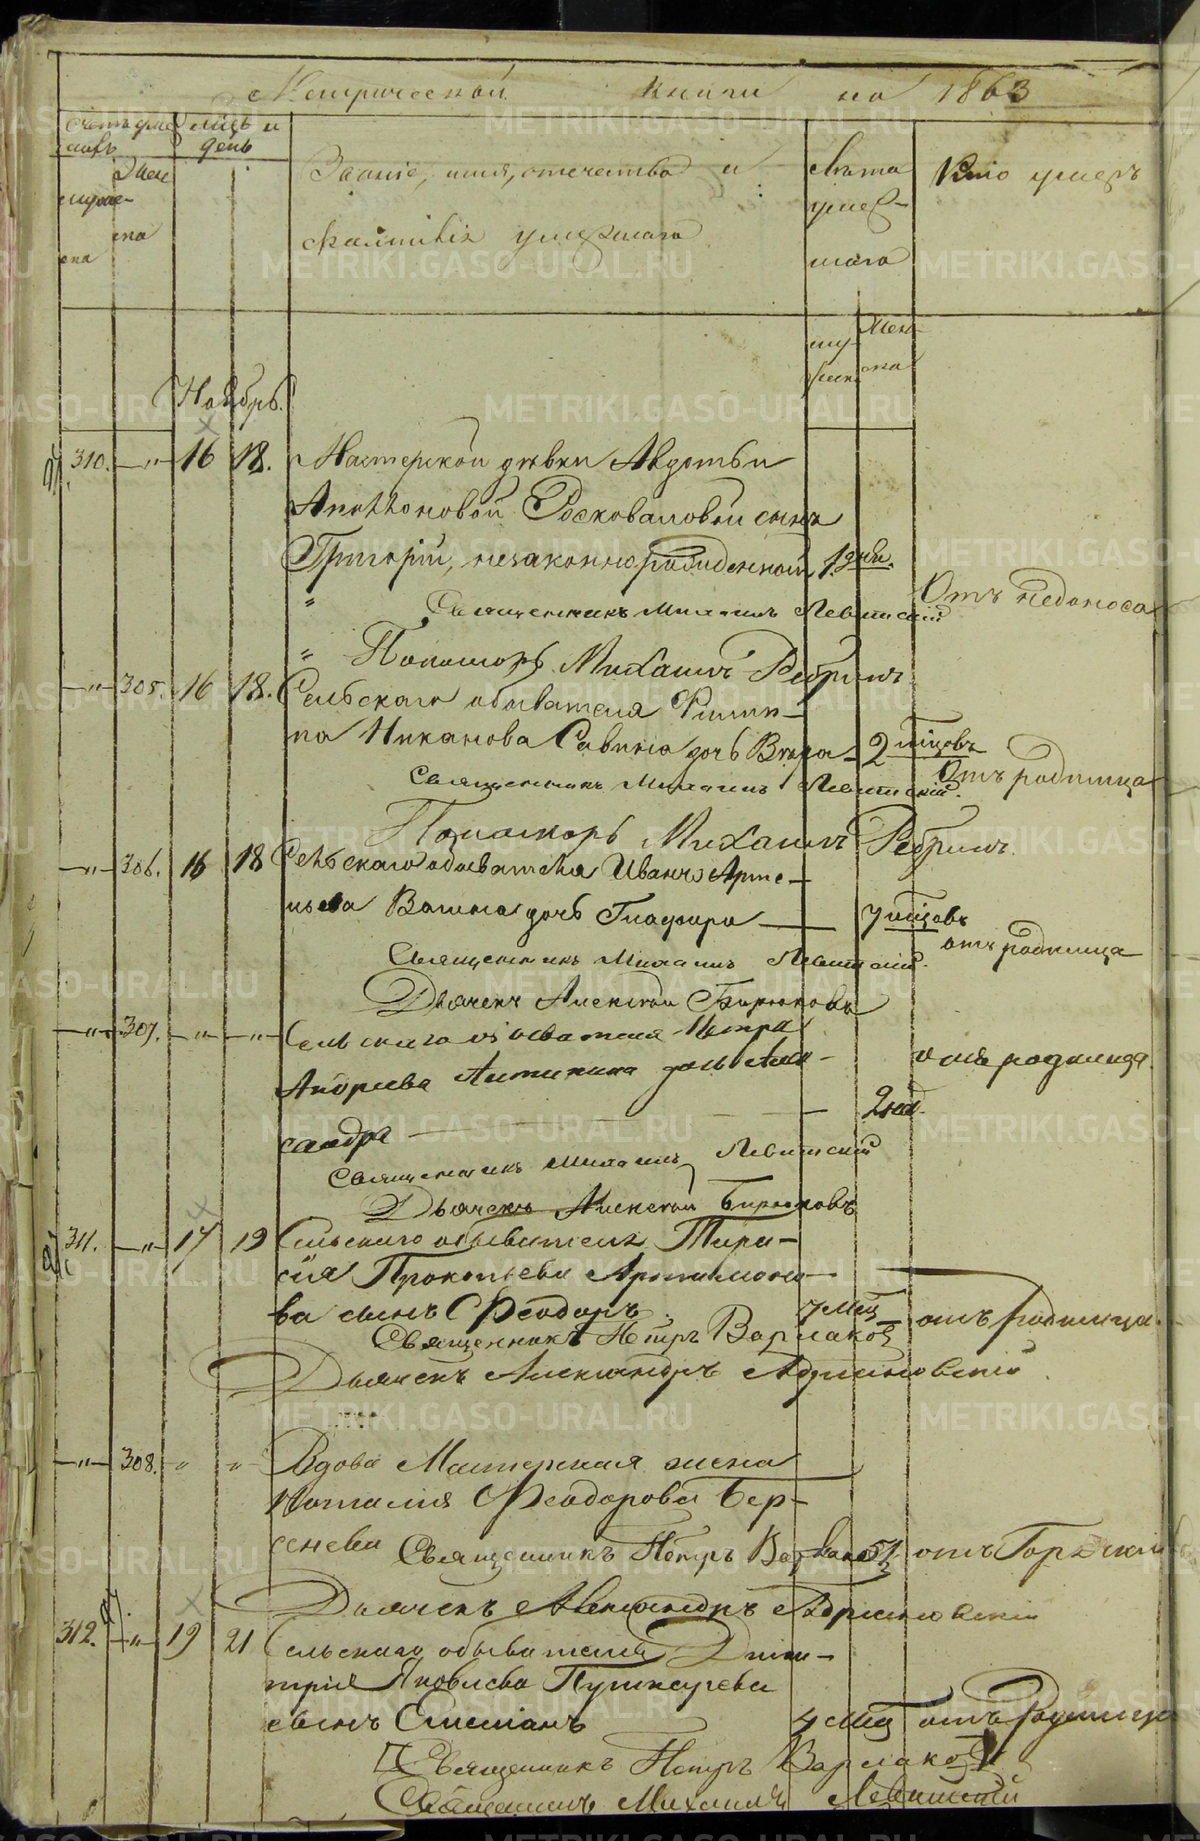 Метрической книги на 1863
Счетъ умершихъ
Мѣсяцъ и день
Званіе, имя, отечество и
фамилія умершаго
Лѣта умершаго
Кто умеръ
Ноябрь.
310. —„— 16 18. Мастерской дѣвки Авдотьи
Антоновой сынъ
Григорій, незаконнорожденной 1. дни.
Отъ недоноса
Священникъ Михаилъ Левитскій
Пономарь Михаилъ Ребринъ
—„— 305. 16 18. Сельскаго обывателя Филип-
па Никанова Савина дочь Вѣра 2 мѣсяцовъ
Отъ родимца
Священникъ Михаилъ Левитскій.
Пономарь Михаилъ Ребринъ.
—„— 306. 16 18 Сельскаго обывателя Ивана Арте-
мьева дочь Глафира 7 мѣсяцовъ
отъ родимца
Священникъ Михаилъ Левитскій.
Дьячекъ Алексѣй Бирюковъ
—„— 307. —„— —„— Сельскаго обывателя Петра
Андреева дочь Алек-
отъ родимца
сандра 2 нед.
Священникъ Михаилъ Левитскій
Дьячекъ Алексѣй Бирюковъ
311. —„— 17 19 Сельскаго обывателя Тара-
сія Прокопьева Артамоно-
ва сынъ Феодоръ 7 мѣс отъ родимца.
Священникъ Петръ Варлаковъ
Дьячекъ Александръ Адріановскій
—„— 308. „ „ Вдова Мастерская жена
Наталія Феодорова Бер-
сенева 51 отъ Горячки
Священникъ Петръ Варлаковъ
Дьячекъ Александръ Адріановскій
312. —„— 19 21 Сельскаго обывателя Дими-
трія Яковлева Пушкарева
сынъ 4 мѣс отъ Родимца
Священникъ Петръ Варлаковъ
Священникъ Михаилъ Левитскій
METRIKI.GASO-URAL.RU